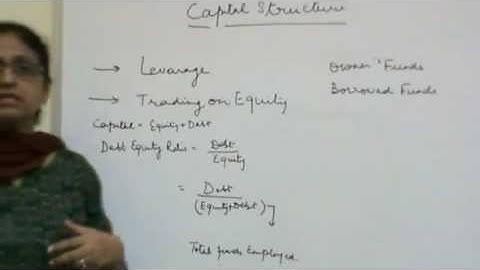 Capital Structure
→ Levarage
Owner's Funds
→ Trading on Equity
Borrowed Funds
Capital = Equity + Debt
Debt Equity Ratio = Debt
Equity
= Debt
(Equity+Debt)
Total funds Employed